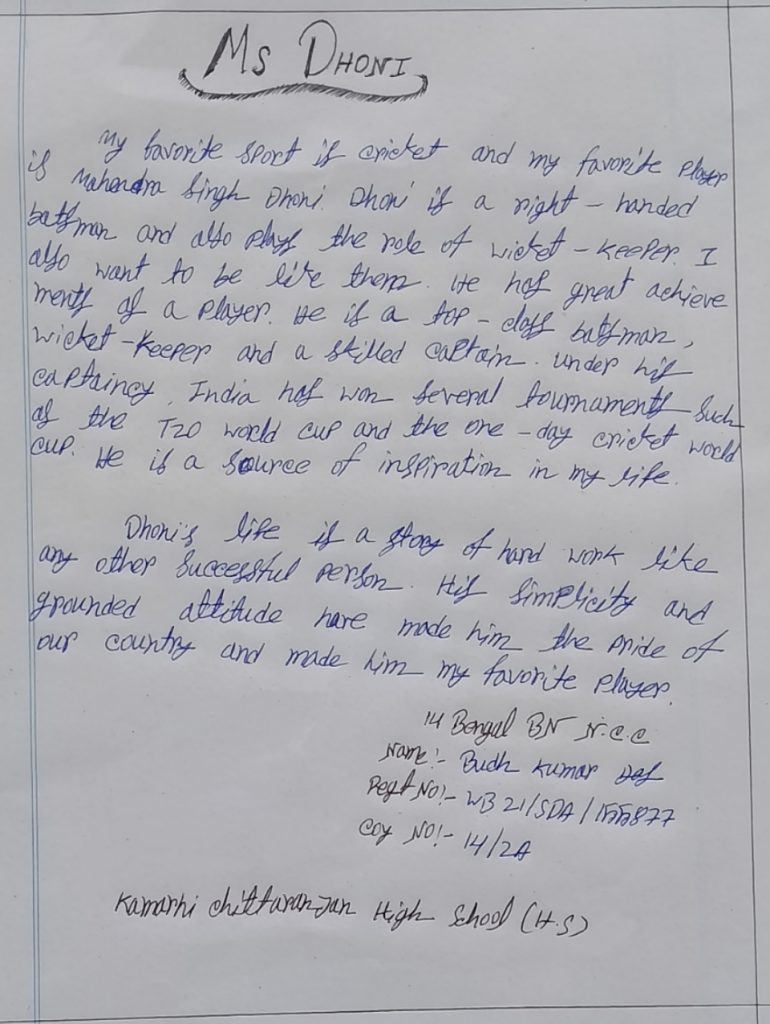 Ms DHONI
My favorite sport is cricket and my favorite player
is Mahendra Singh Dhoni. Dhoni is a right - handed
batsman and also plays the role of wicket - keeper. I
also want to be like them. He has great achieve
ments as a player. He is a top - class batsman,
wicket - keeper and a skilled captain. Under his
captaincy, India has won several tournaments such
as the T20 world cup and the one - day cricket world
cup. He is a source of inspiration in my life.
Dhoni's life is a story of hard work like
any other successful person. His simplicity and
grounded attitude have made him the pride of
our country and made him my favorite player.
14 Bengal BN N.C.C
Name:- Budh Kumar Das
Regt No:- WB21/SDA/155877
Coy No:- 14/2A
Kamarhi Chittaranjan High School (H.S)